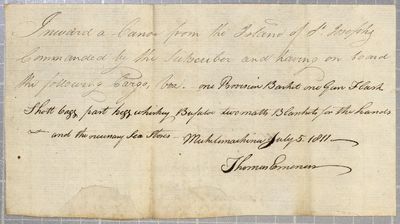 Inward a Canoe from the Island of St Josephs
Commanded by the Subscriber and having on board
the following Cargo, viz. on Provision Basket one Gun Flask
Shott bagg part kegg whiskey Bufalow two matts Blankets for the hands
and the necessary Sea Stores Michilimackina July 5. 1811
Thomas